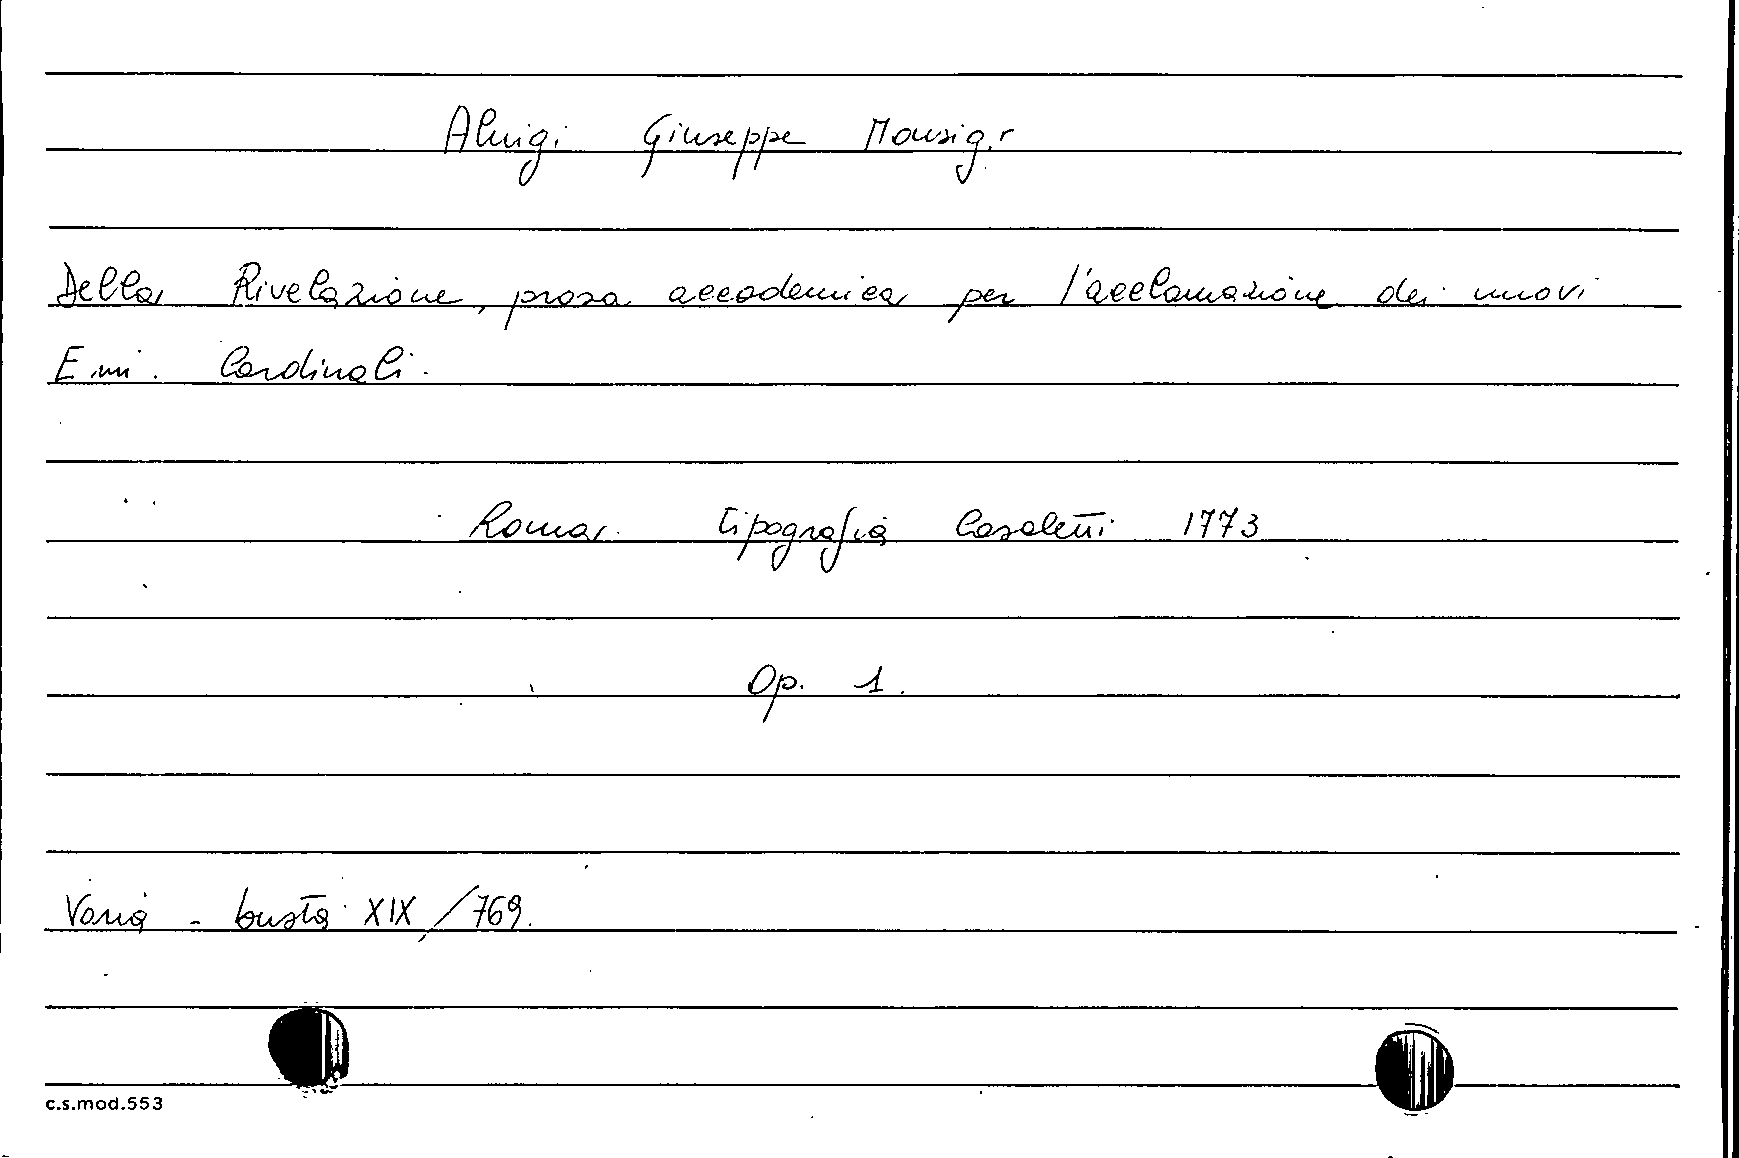 Aluigi Giuseppe Monsig.r
Della Rivelazione, prosa accademica per l'acclamazione dei nuovi
E.mi. Cardinali.
Roma. tipografia Casaletti 1773
Op. 1.
Varia - busta XIX/769.
c.s.mod.553